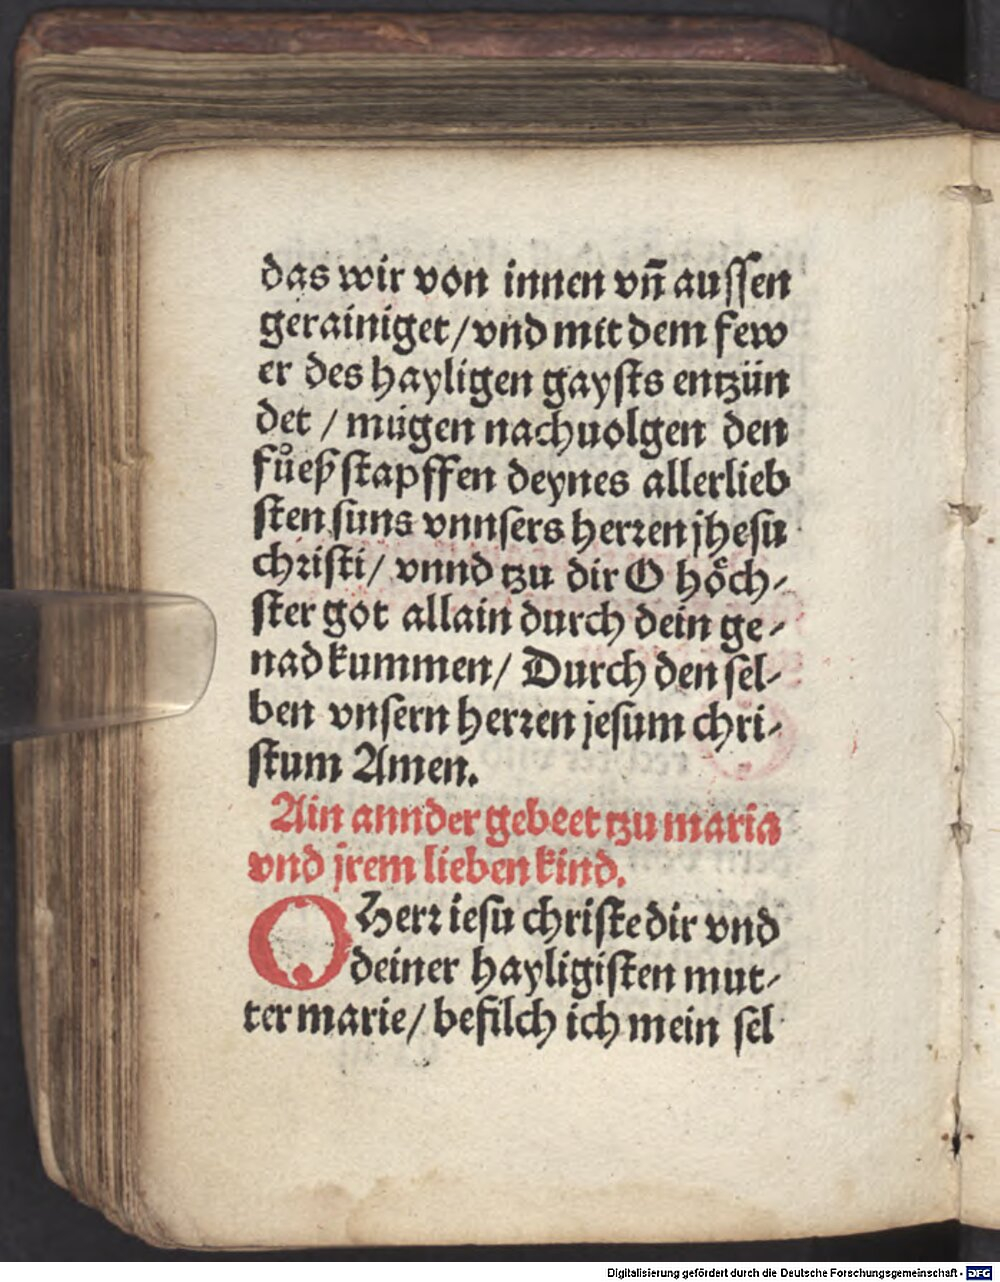 das wir von innen vñ aussen
gerainiget / vnd mit dem few
er des hayligen gaysts entzün
det / mügen nachuolgen den
fůeß stapffen deynes allerlieb
sten suns vnnsers herren jhesu
christi / vnnd tzu dir O hoͤch⸗
ster got allain durch dein ge⸗
nad kummen / Durch den sel⸗
ben vnsern herren jesum chri⸗
stum Amen.
Ain annder gebeet tzu maria
vnd jrem lieben kind.
O Herr iesu christe dir vnd
deiner hayligisten mut⸗
ter marie / befilch ich mein sel
Digitalisierung gefördert durch die Deutsche Forschungsgemeinschaft - DFG